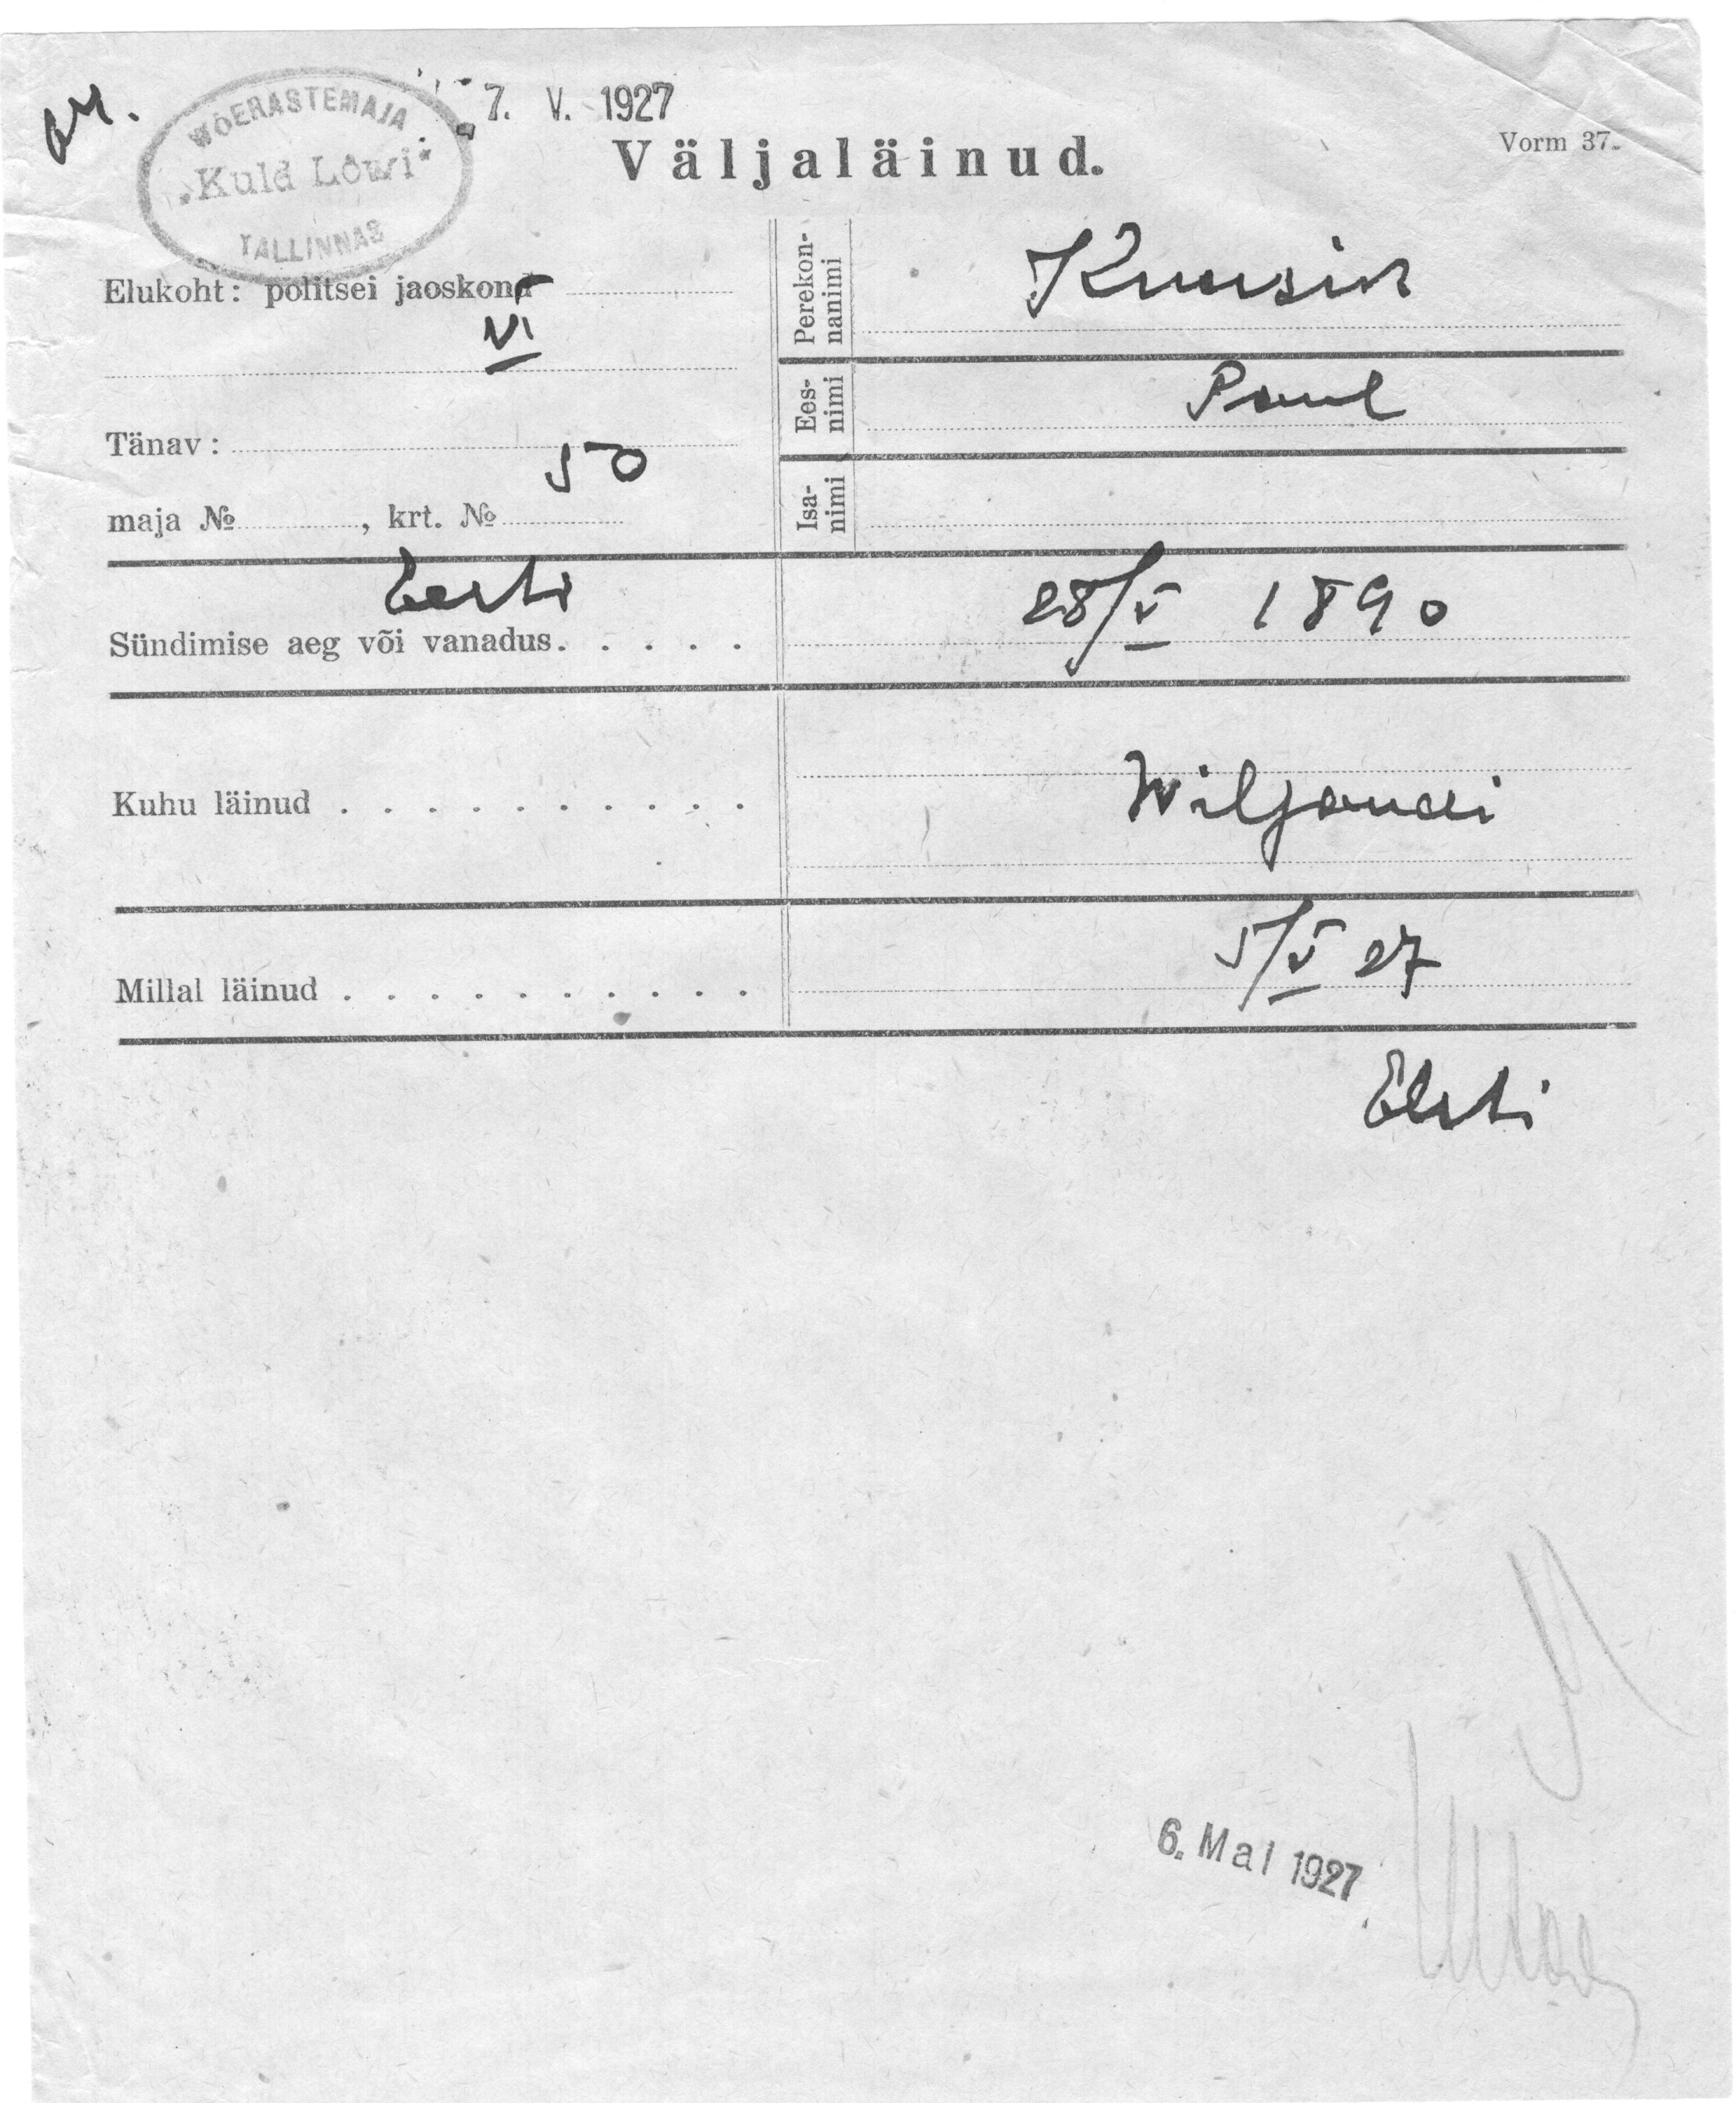 WÕERASTEMAJA
„Kuld Lõwi“
TALLINNAS
7. V. 1927
Väljaläinud.
Vorm 37.
Elukoht: politsei jaoskond
VI
Tänav:
50
maja №, krt. №
Perekon-
nanimi
Kuusik
Ees-
nimi
Paul
Isa-
nimi
Eesti
Sündimise aeg või vanadus. . . . .
28/V 1890
Kuhu läinud . . . . . . . . . .
Wiljandi
Millal läinud . . . . . . . . . .
5/V 27
Eesti
6. Mai 1927